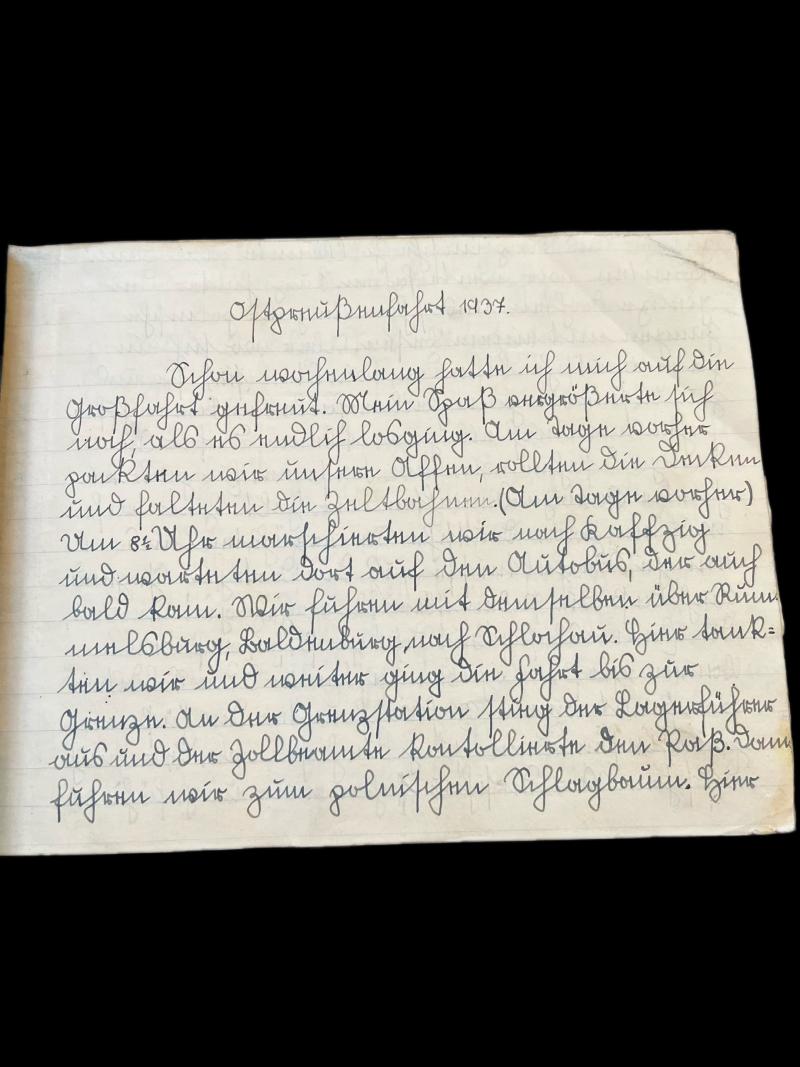 Ostpreußenfahrt 1937.
Schon wochenlang hatte ich mich auf die
Großfahrt gefreut. Mein Spaß vergrößerte sich
noch, als es endlich losging. Am Tage vorher
packten wir unsere Affen, rollten die Decken
und falteten die Zeltbahnen. (Am Tage vorher)
Um 8½ Uhr marschierten wir nach Kaffzig
und warteten dort auf den Autobus, der auch
bald kam. Wir fuhren mit demselben über Rum-
melsburg, Baldenburg nach Schlochau. Hier tank=
ten wir und weiter ging die Fahrt bis zur
Grenze. An der Grenzstation stieg der Lagerführer
aus und der Zollbeamte kontollierte den Paß. Dann
fuhren wir zum polnischen Schlagbaum. Hier